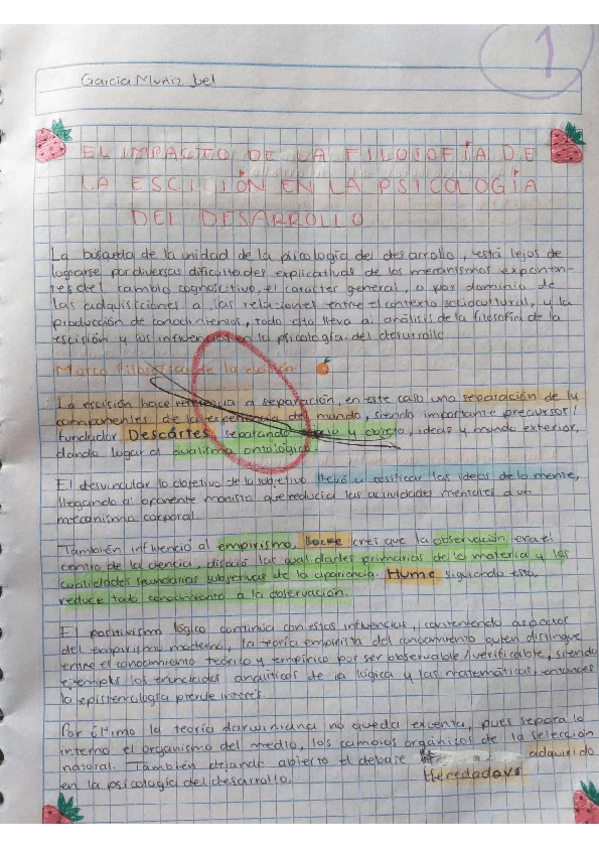 1
García Muñiz Jael
EL IMPACTO DE LA FILOSOFÍA DE
LA ESCISIÓN EN LA PSICOLOGÍA
DEL DESARROLLO
La búsqueda de la unidad de la psicología del desarrollo, está lejos de
lograrse por diversas dificultades explicativas de los mecanismos exponen-
tes del cambio cognoscitivo, el carácter general, o por dominio de
las adquisiciones a las relaciones entre el contexto sociocultural, y la
producción de conocimientos, todo esto lleva al análisis de la filosofía de la
escisión y sus influencias en la psicología del desarrollo
Marco filosófico de la escisión
La escisión hace referencia a separación, en este caso una separación de la
componentes de la experiencia del mundo, siendo importante precursor/
fundador Descartes, separando sujeto y objeto, ideas y mundo exterior,
dando lugar al dualismo ontológico.
El desvincular lo objetivo de lo subjetivo llevó a cosificar las ideas de la mente,
llegando al oponente monista que reducía las actividades mentales a un
mecanismo corporal.
También influenció al empirismo, Locke creí que la observación era el
centro de la ciencia, disoció las cualidades primarias de la materia y las
cualidades secundarias subjetivas de la apariencia. Hume siguiendo esto,
reduce todo conocimiento a la observación.
El positivismo lógico continúa con estas influencias, conteniendo aspectos
del empirismo moderno, la teoría empirista del conocimiento quien distingue
entre el conocimiento teórico y empírico por ser observable/verificable, siendo
ejemplo los enunciados analíticos de la lógica y las matemáticas, entonces
la epistemología pierde interés.
Por último la teoría darwiniana no queda excenta, pues separa lo
interno el organismo del medio, los cambios orgánicos de la selección
natural. También dejando abierto el debate adquirido
en la psicología del desarrollo. Heredado vs